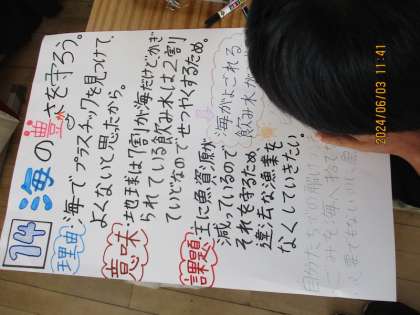 14
海の豊かさを守ろう。
理由 海でプラスチックを見つけて、
よくないと思ったから。
意味 地球は7割が海だけど、かぎ
られている飲み水は2割
ていどなのでせつやくするため。
課題 主に魚資源が
減っているので
それを守るため
違法な漁業を
なくしていきたい。
海がよごれる
飲み水が
2024/06/03 11:41